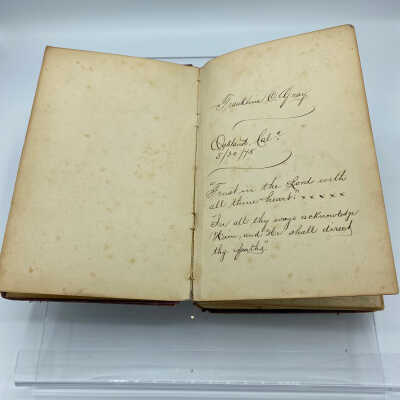 Franklin C. Gray
Oakland, Cal.
5/30/75
"Trust in the Lord with
all thine heart." x x x x x
"In all thy ways acknowledge
Him, and He shall direct
thy paths."